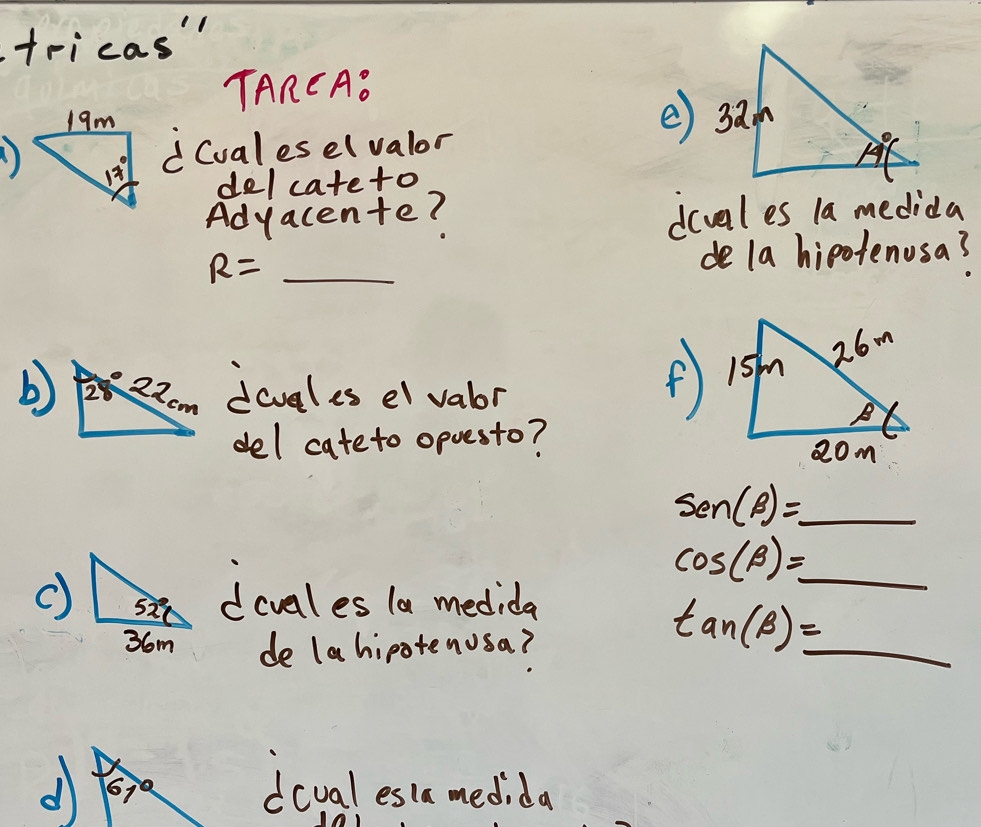 tricas"
TAREA:
a) 19m
17°
¿Cual es el valor
del cateto
Adyacente?
R = ______
b) 28° 22cm
¿cual es el valor
del cateto opuesto?
c) 52°
36m
¿cual es la medida
de la hipotenusa?
d) 61°
¿cual es la medida
e) 32m
14°
¿cual es la medida
de la hipotenusa?
f) 15m 26m
β
20m
sen(β)=______
cos(β)=______
tan(β)=______